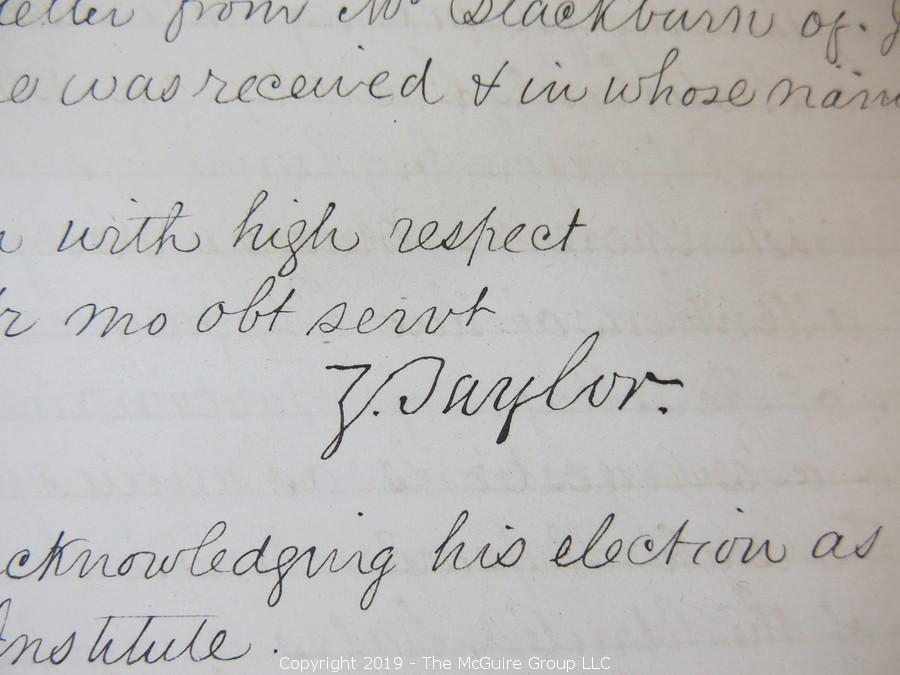 letter from Mr Blackburn of.
was received & in whose nam
with high respect
mo obt servt
Z. Taylor.
cknowledging his election as
Institute.
Copyright 2019 - The McGuire Group LLC